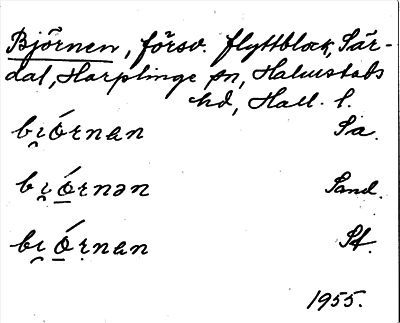 Björnen, försv. flyttblock, Sär-
dal, Harplinge sn, Halmstads
hd, Hall. l.
bi̯órnan Sa.
bi̯ó̲rnən Sand.
bi̯ó̲rnan St.
1955.